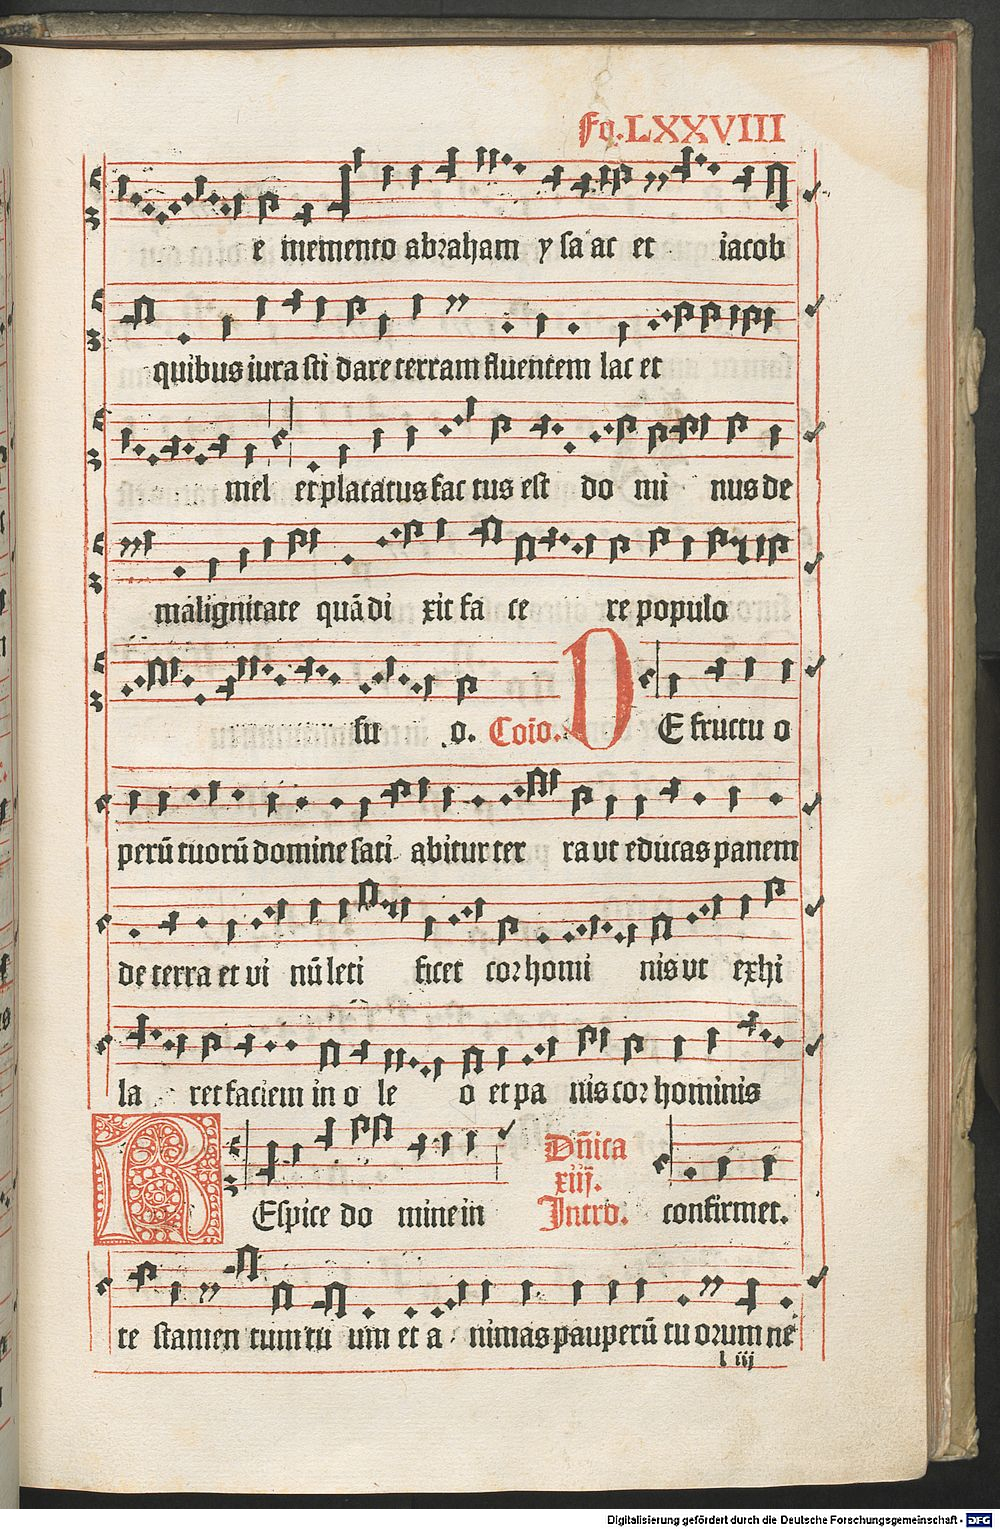 Fo. LXXVIII
e memento abraham y sa ac et iacob
quibus iura sti dare terram fluentem lac et
mel et placatus fac tus est do mi nus de
malignitate quā di xit fa ce re populo
su o. Coīo. DE fructu o
perū tuorū domine sati abitur ter ra ut educas panem
de terra et vi nū leti ficet cor homi nis ut exhi
la ret faciem in o le o et pa nis cor hominis
REspice do mine in Dn̄ica xiij. Introⁱ. confirmet.
te stamen tum tu um et a nimas pauperū tu orum ne
l iij
Digitalisierung gefördert durch die Deutsche Forschungsgemeinschaft - DFG